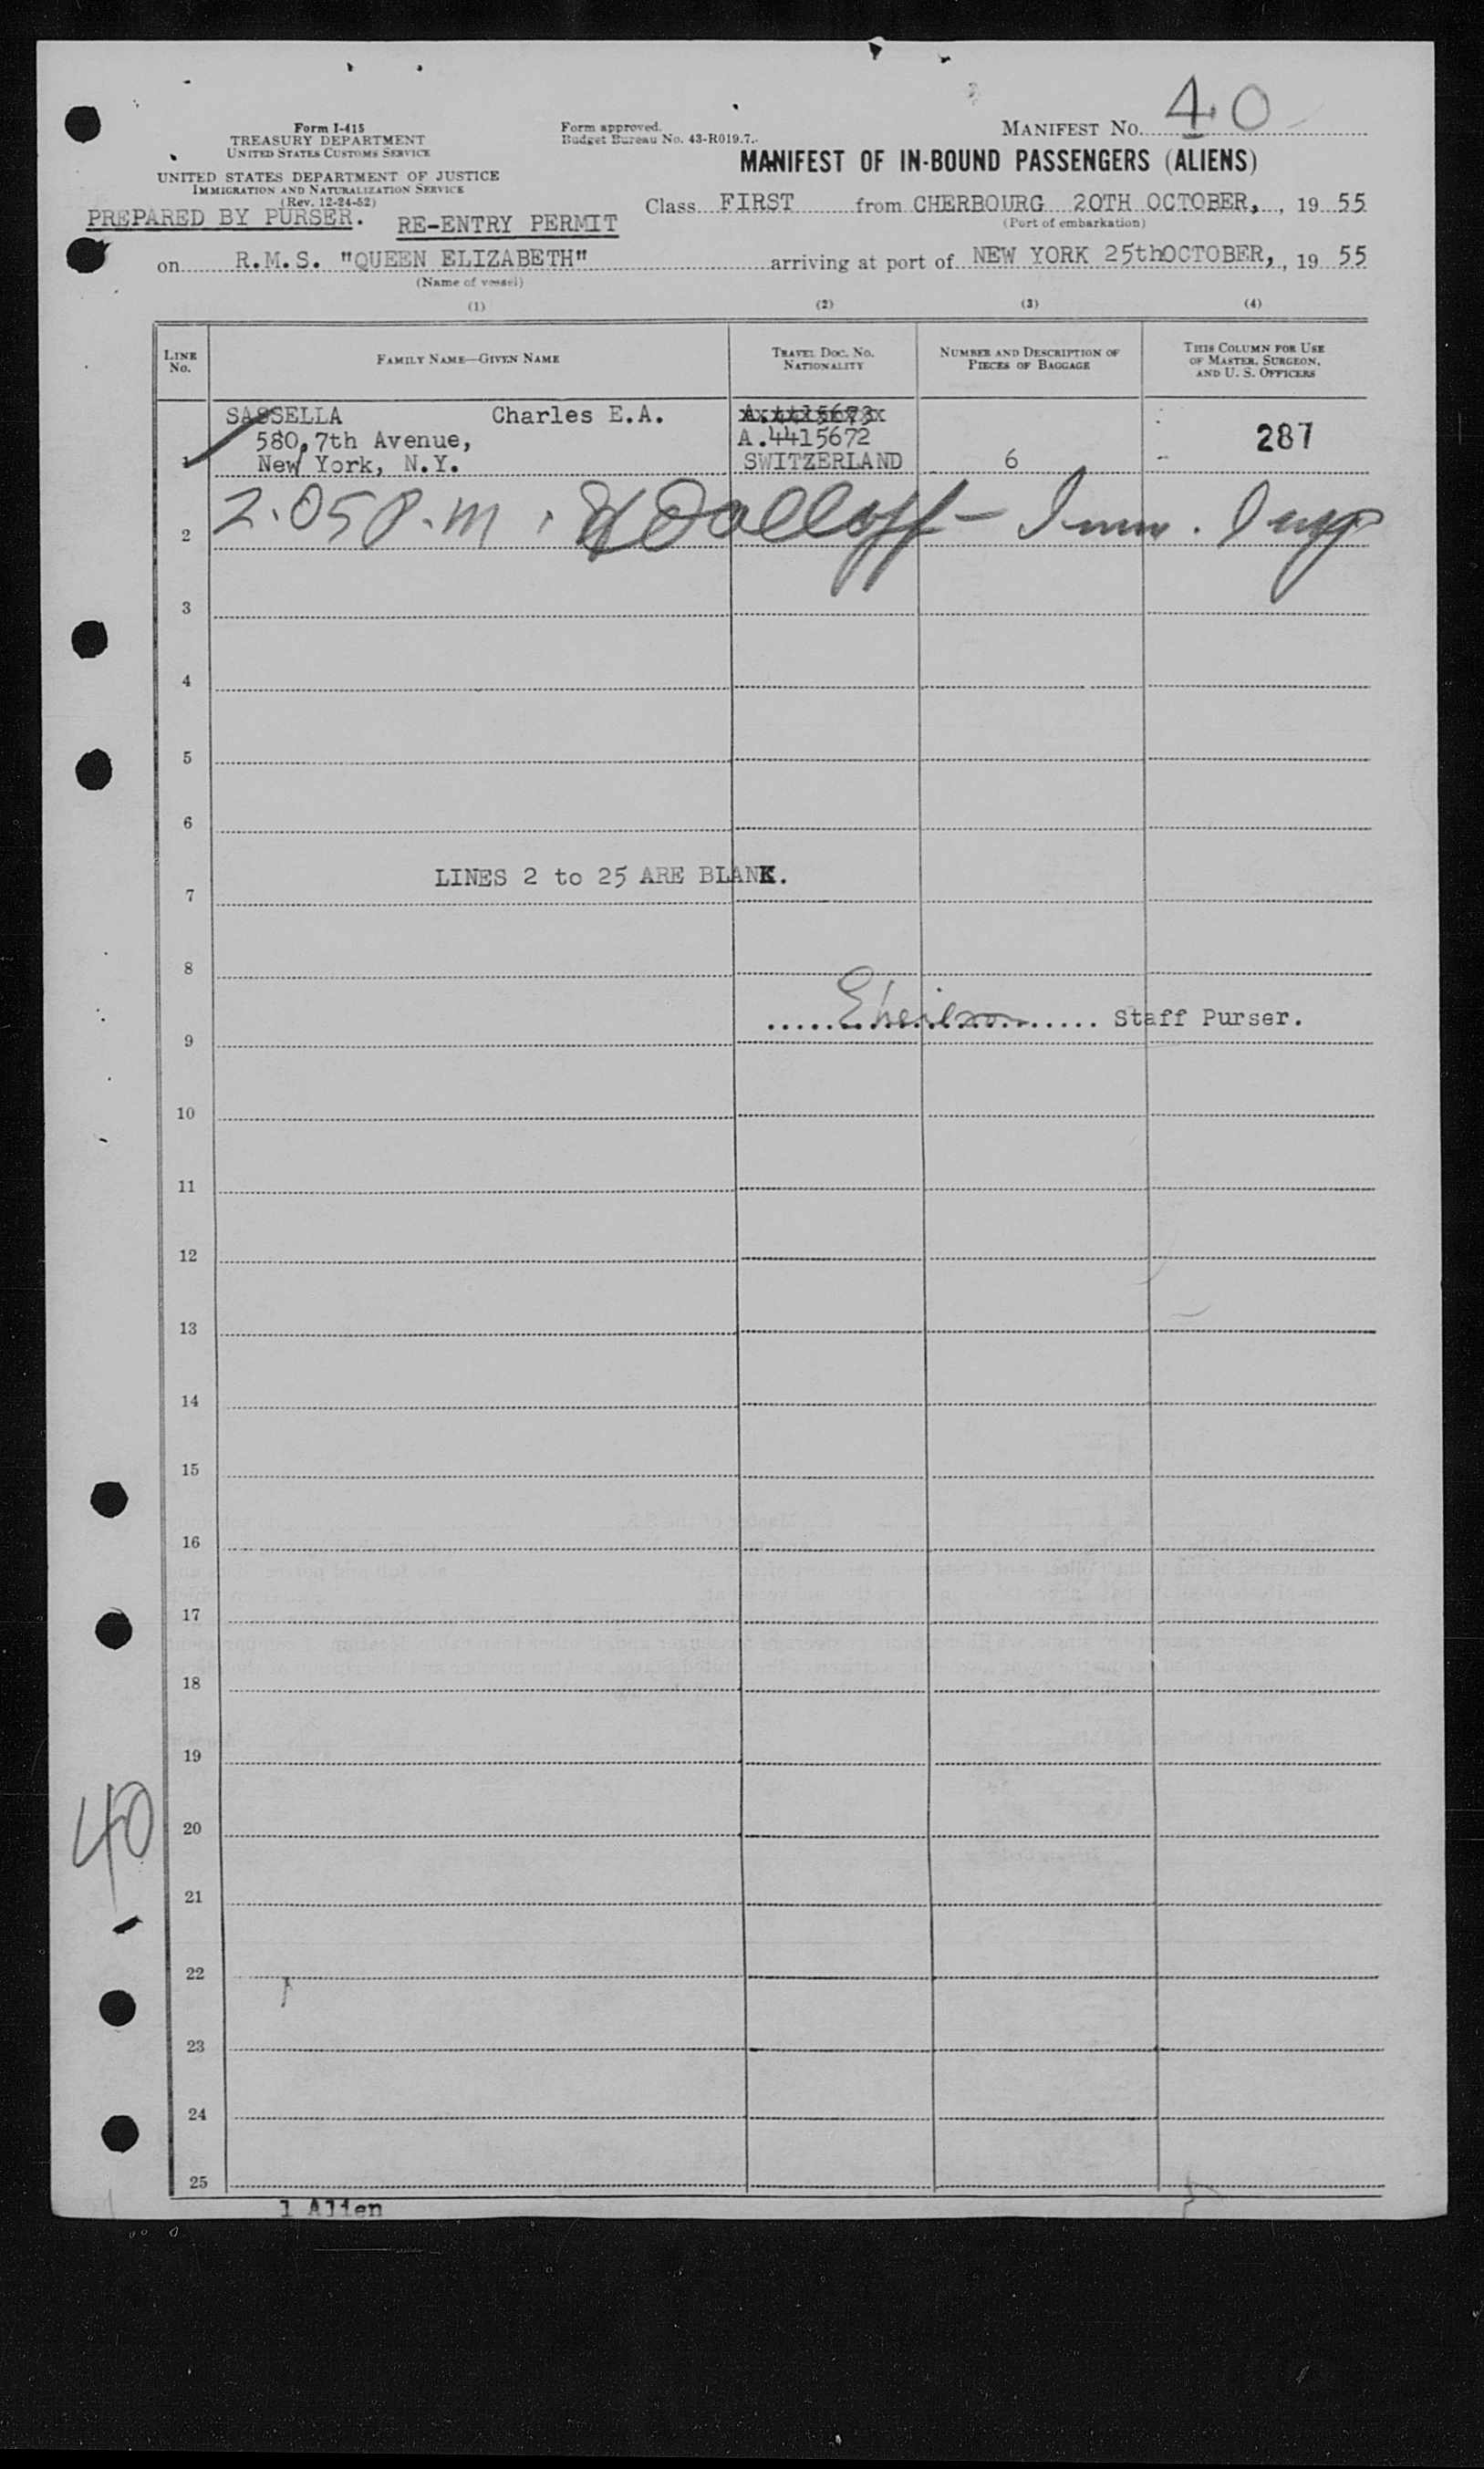 MANIFEST NO. 40
Form I-415
TREASURY DEPARTMENT
UNITED STATES CUSTOMS SERVICE
Form approved.
Budget Bureau No. 43-R019.7.
MANIFEST OF IN-BOUND PASSENGERS (ALIENS)
UNITED STATES DEPARTMENT OF JUSTICE
IMMIGRATION AND NATURALIZATION SERVICE
(Rev. 12-24-52)
PREPARED BY PURSER. RE-ENTRY PERMIT
Class FIRST from CHERBOURG 20TH OCTOBER, , 19 55
(Port of embarkation)
on R.M.S. "QUEEN ELIZABETH" arriving at port of NEW YORK 25thOCTOBER, , 19 55
(Name of vessel)
(1) (2) (3) (4)
LINE No. FAMILY NAME—GIVEN NAME TRAVEL DOC. NO. NATIONALITY NUMBER AND DESCRIPTION OF PIECES OF BAGGAGE THIS COLUMN FOR USE OF MASTER, SURGEON, AND U. S. OFFICERS
SASSELLA Charles E.A. A.4415673
580,7th Avenue, A.4415672 287
1 New York, N.Y. SWITZERLAND 6
2 2.05 P.M. - Imm. Insp
3
4
5
6
LINES 2 to 25 ARE BLANK.
7
8
Staff Purser.
9
10
11
12
13
14
15
16
17
18
19
40
20
21
22
23
24
25
1 Alien